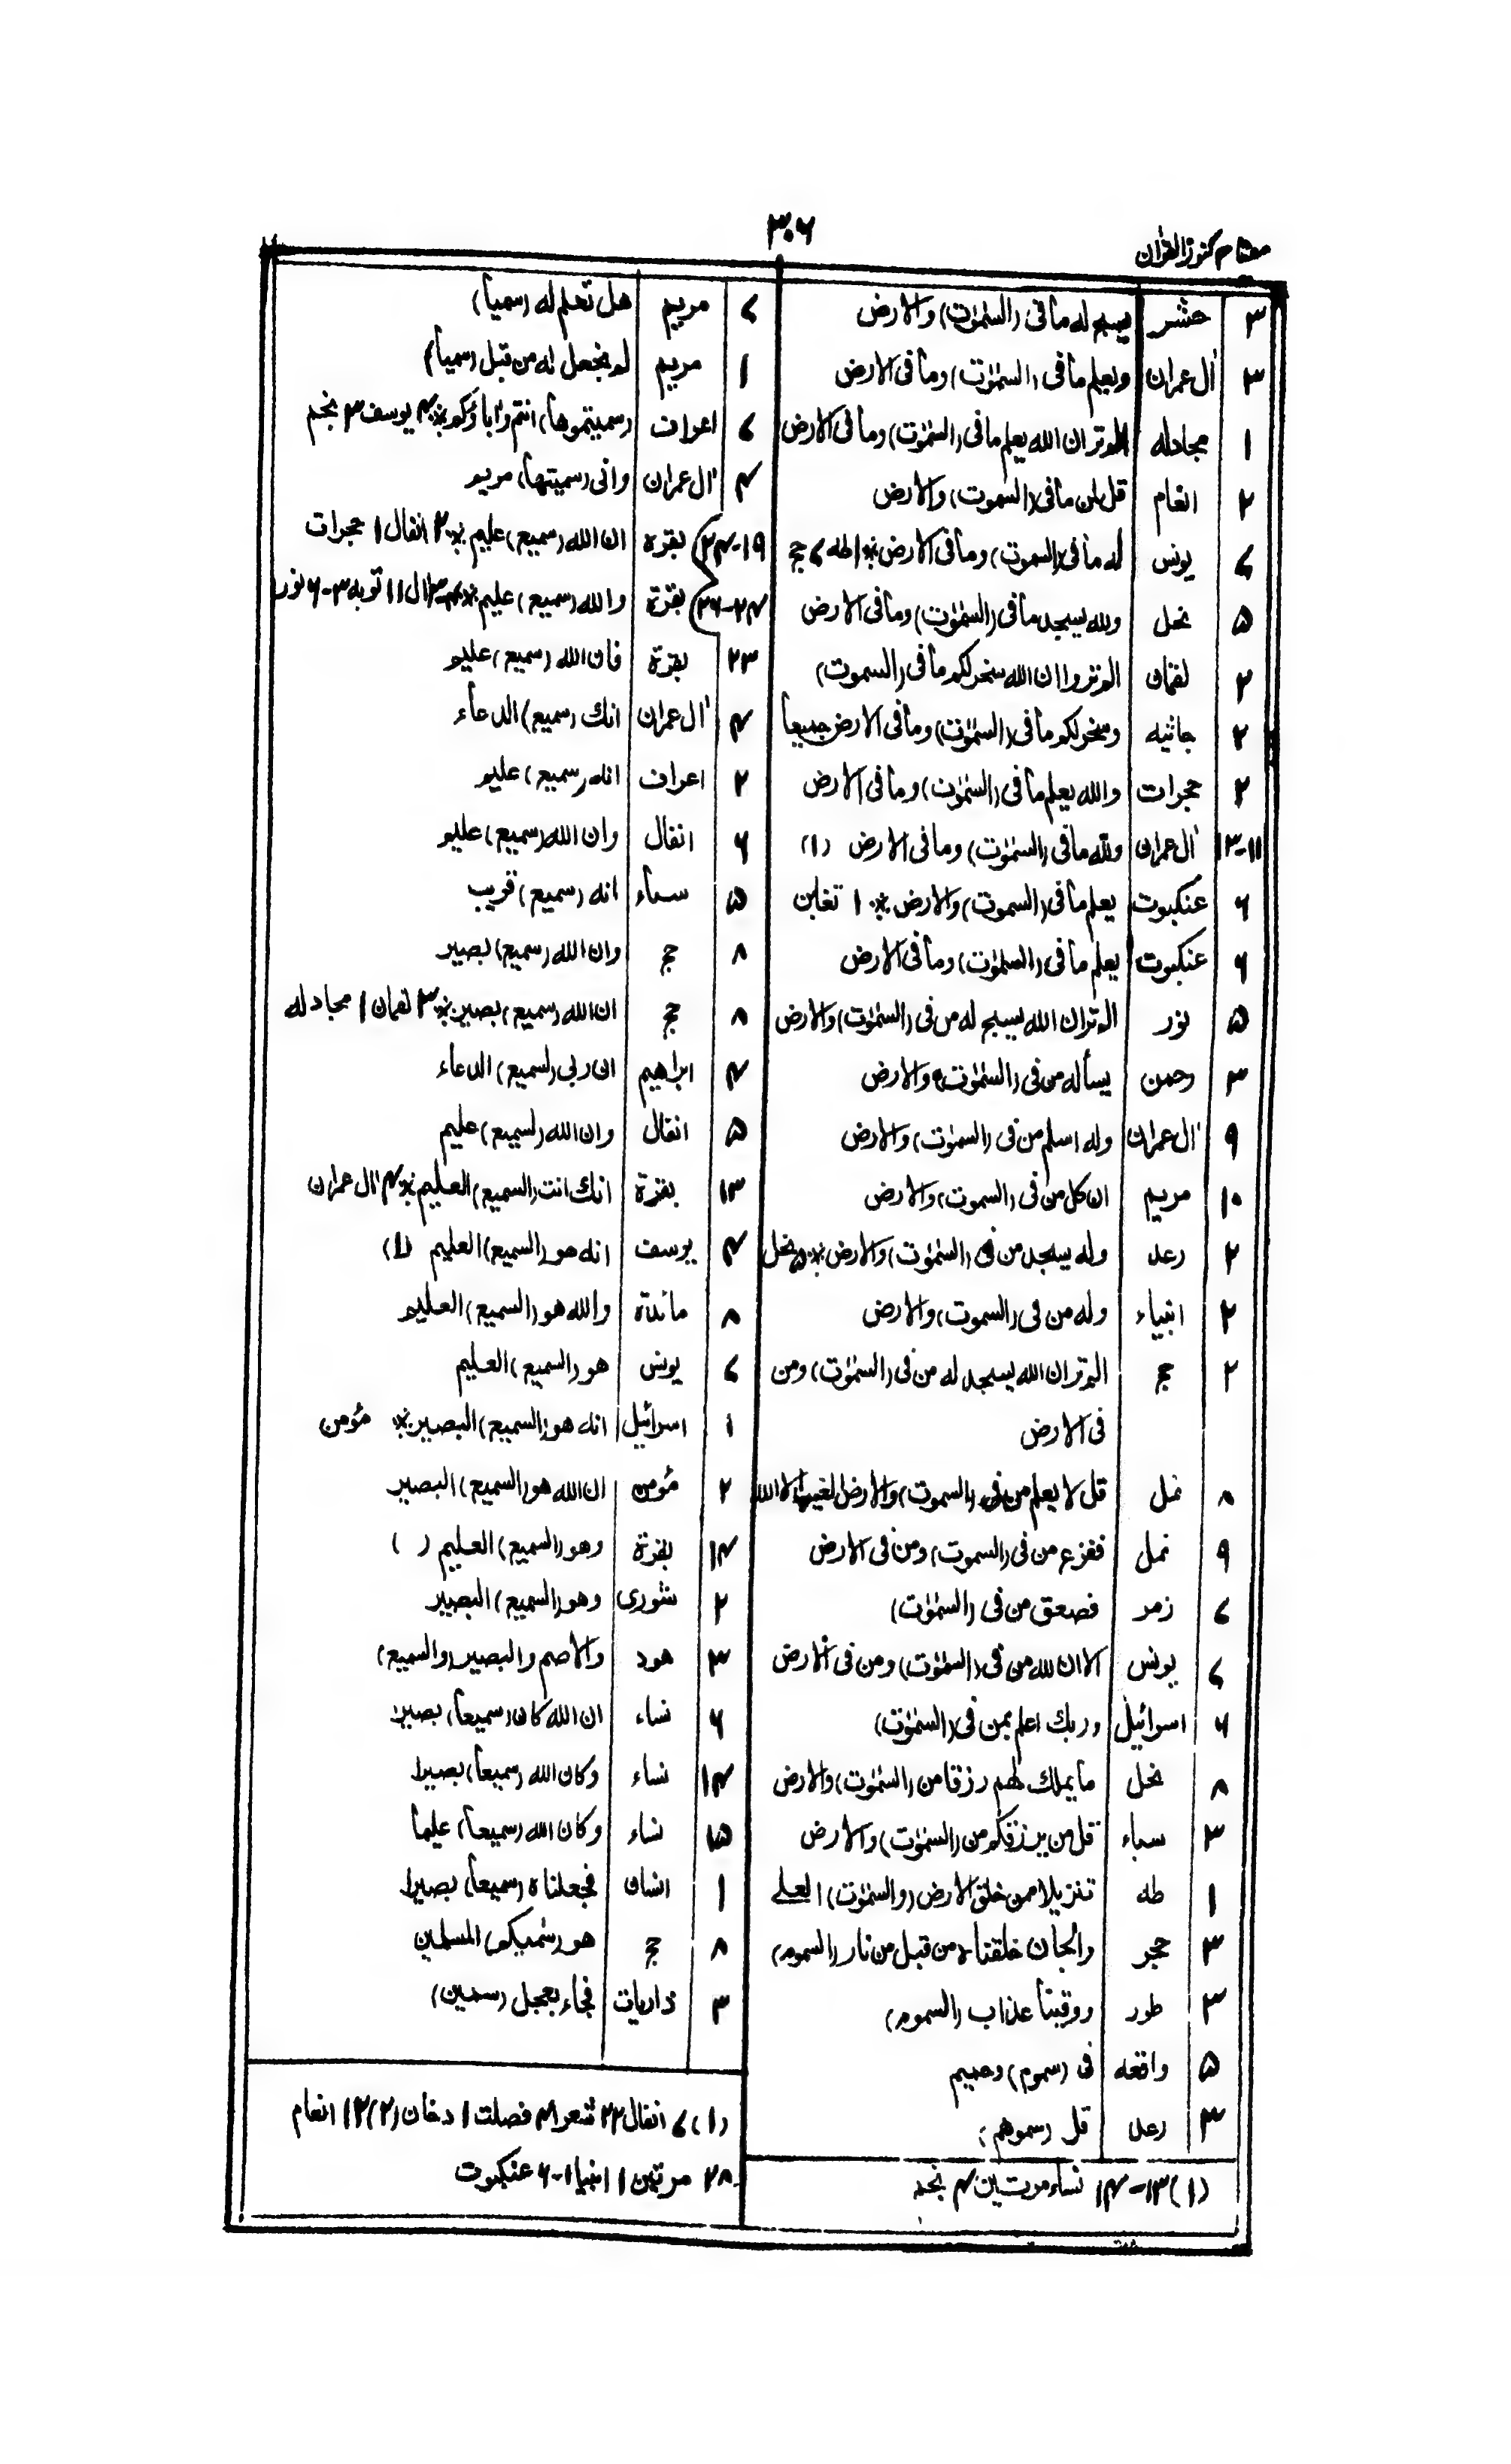 مفتاح كنوز القرآن
۳۰۶
۳ حشر يسبح له ما فى (السمٰوٰت) والارض
۳ اٰل عمران ويعلم ما فى (السمٰوٰت) وما فى الارض
۱ مجادله الم تر ان الله يعلم ما فى (السمٰوٰت) وما فى الارض
۲ انعام قل لمن ما فى (السموت) والارض
۷ يونس له ما فى (السموت) وما فى الارض ※ ۱ طه ۷ حج
۵ نحل ولله يسجد ما فى (السمٰوٰت) وما فى الارض
۲ لقمان الم تروا ان الله سخر لكم ما فى (السموت)
۲ جاثيه وسخر لكم ما فى (السمٰوٰت) وما فى الارض جميعاً
۲ حجرات والله يعلم ما فى (السمٰوٰت) وما فى الارض
۱۱-۱۳ اٰل عمران ولله ما فى (السمٰوٰت) وما فى الارض (۱)
۶ عنكبوت يعلم ما فى (السموت) والارض ※ ۱ تغابن
۶ عنكبوت يعلم ما فى (السمٰوٰت) وما فى الارض
۵ نور الم تر ان الله يسبح له من فى (السمٰوٰت) والارض
۲ رحمن يسأله من فى (السمٰوٰت) والارض
۹ اٰل عمران وله اسلم من فى (السمٰوٰت) والارض
۱۰ مريم ان كل من فى (السموت) والارض
۲ رعد وله يسجد من فى (السمٰوٰت) والارض ※ ۵ نحل
۲ انبياء وله من فى (السموت) والارض
۲ حج الم تر ان الله يسجد له من فى (السمٰوٰت) ومن
فى الارض
۸ نمل قل لا يعلم من فى (السموت) والارض الغيب الا الله
۹ نمل ففزع من فى (السموت) ومن فى الارض
۷ زمر فصعق من فى (السمٰوٰت)
۷ يونس الا ان لله من فى (السمٰوٰت) ومن فى الارض
۶ اسرائيل وربك اعلم بمن فى (السمٰوٰت)
۸ نحل ما يملك لهم رزقا من (السمٰوٰت) والارض
۳ سباء قل من يرزقكم من (السمٰوٰت) والارض
۱ طه تنزيلا ممن خلق الارض (والسمٰوٰت) العلے
۳ حجر والجان خلقناه من قبل من نار (السموم)
۳ طور ووقينا عذاب (السموم)
۵ واقعه فى (سموم) وحميم
۳ رعد قل (سموهم)
(۱) ۱۳-۱۴ نساء مرتين ۴ نجد
۷ مريم هل تعلم له (سمياً)
۱ مريم لم نجعل له من قبل (سمياً)
۷ اعراف (سميتموها) انتم واٰباؤكم ※ ۴ يوسف ۳ نجم
۴ اٰل عمران وانى (سميتها) مريم
۱۹-۲۴ بقره ان الله (سميع) عليم ※ ۲ انفال ۱ حجرات
۲۴-۲۶ بقرة والله (سميع) عليم ※ ۴-۳ اٰل ۱۱ توبه ۳-۶ نور
۲۳ بقرة فان الله (سميع) عليم
۴ اٰل عمران انك (سميع) الدعاء
۲ اعراف انه (سميع) عليم
۶ انفال وان الله (سميع) عليم
۵ سباء انه (سميع) قريب
۸ حج وان الله (سميع) بصير
۸ حج ان الله (سميع) بصير ※ ۳ لقمان ۱ مجادله
۴ ابراهيم ان ربى (لسميع) الدعاء
۵ انفال وان الله (لسميع) عليم
۱۳ بقرة انك انت (السميع) العليم ※ ۴ اٰل عمران
۴ يوسف انه هو (السميع) العليم (۱)
۸ مائدة والله هو (السميع) العليم
۷ يونس هو (السميع) العليم
۱ اسرائيل انه هو (السميع) البصير ※ مؤمن
۲ مؤمن ان الله هو (السميع) البصير
۱۴ بقرة وهو (السميع) العليم ( )
۲ شورى وهو (السميع) البصير
۳ هود والاصم والبصير (والسميع)
۶ نساء ان الله كان (سميعاً) بصيرا
۱۴ نساء وكان الله (سميعاً) بصيرا
۱۵ نساء وكان الله (سميعاً) عليما
۱ انسان فجعلناه (سميعاً) بصيرا
۸ حج هو (سمٰيكم) المسلمين
۳ ذاريات فجاء بعجل (سمين)
(۱) ۷ انفال ۲۲ شعر ۴ فصلت ۱ دخان (۲) ۲ انعام
۲۸ مرتين ۱ انبيا ۱-۶ عنكبوت